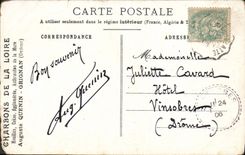 CARTE POSTALE
A utiliser seulement dans le régime intérieur (France, Algérie &
CORRESPONDANCE
ADRESSE
CHARBONS DE LA LOIRE
Auguste QUENIN - GRIGNAN (Drôme)
Bon souvenir
Aug. Quenin
Mademoiselle
Juliette Cavard
Hôtel
Vinsobres
(Drôme)
24
06